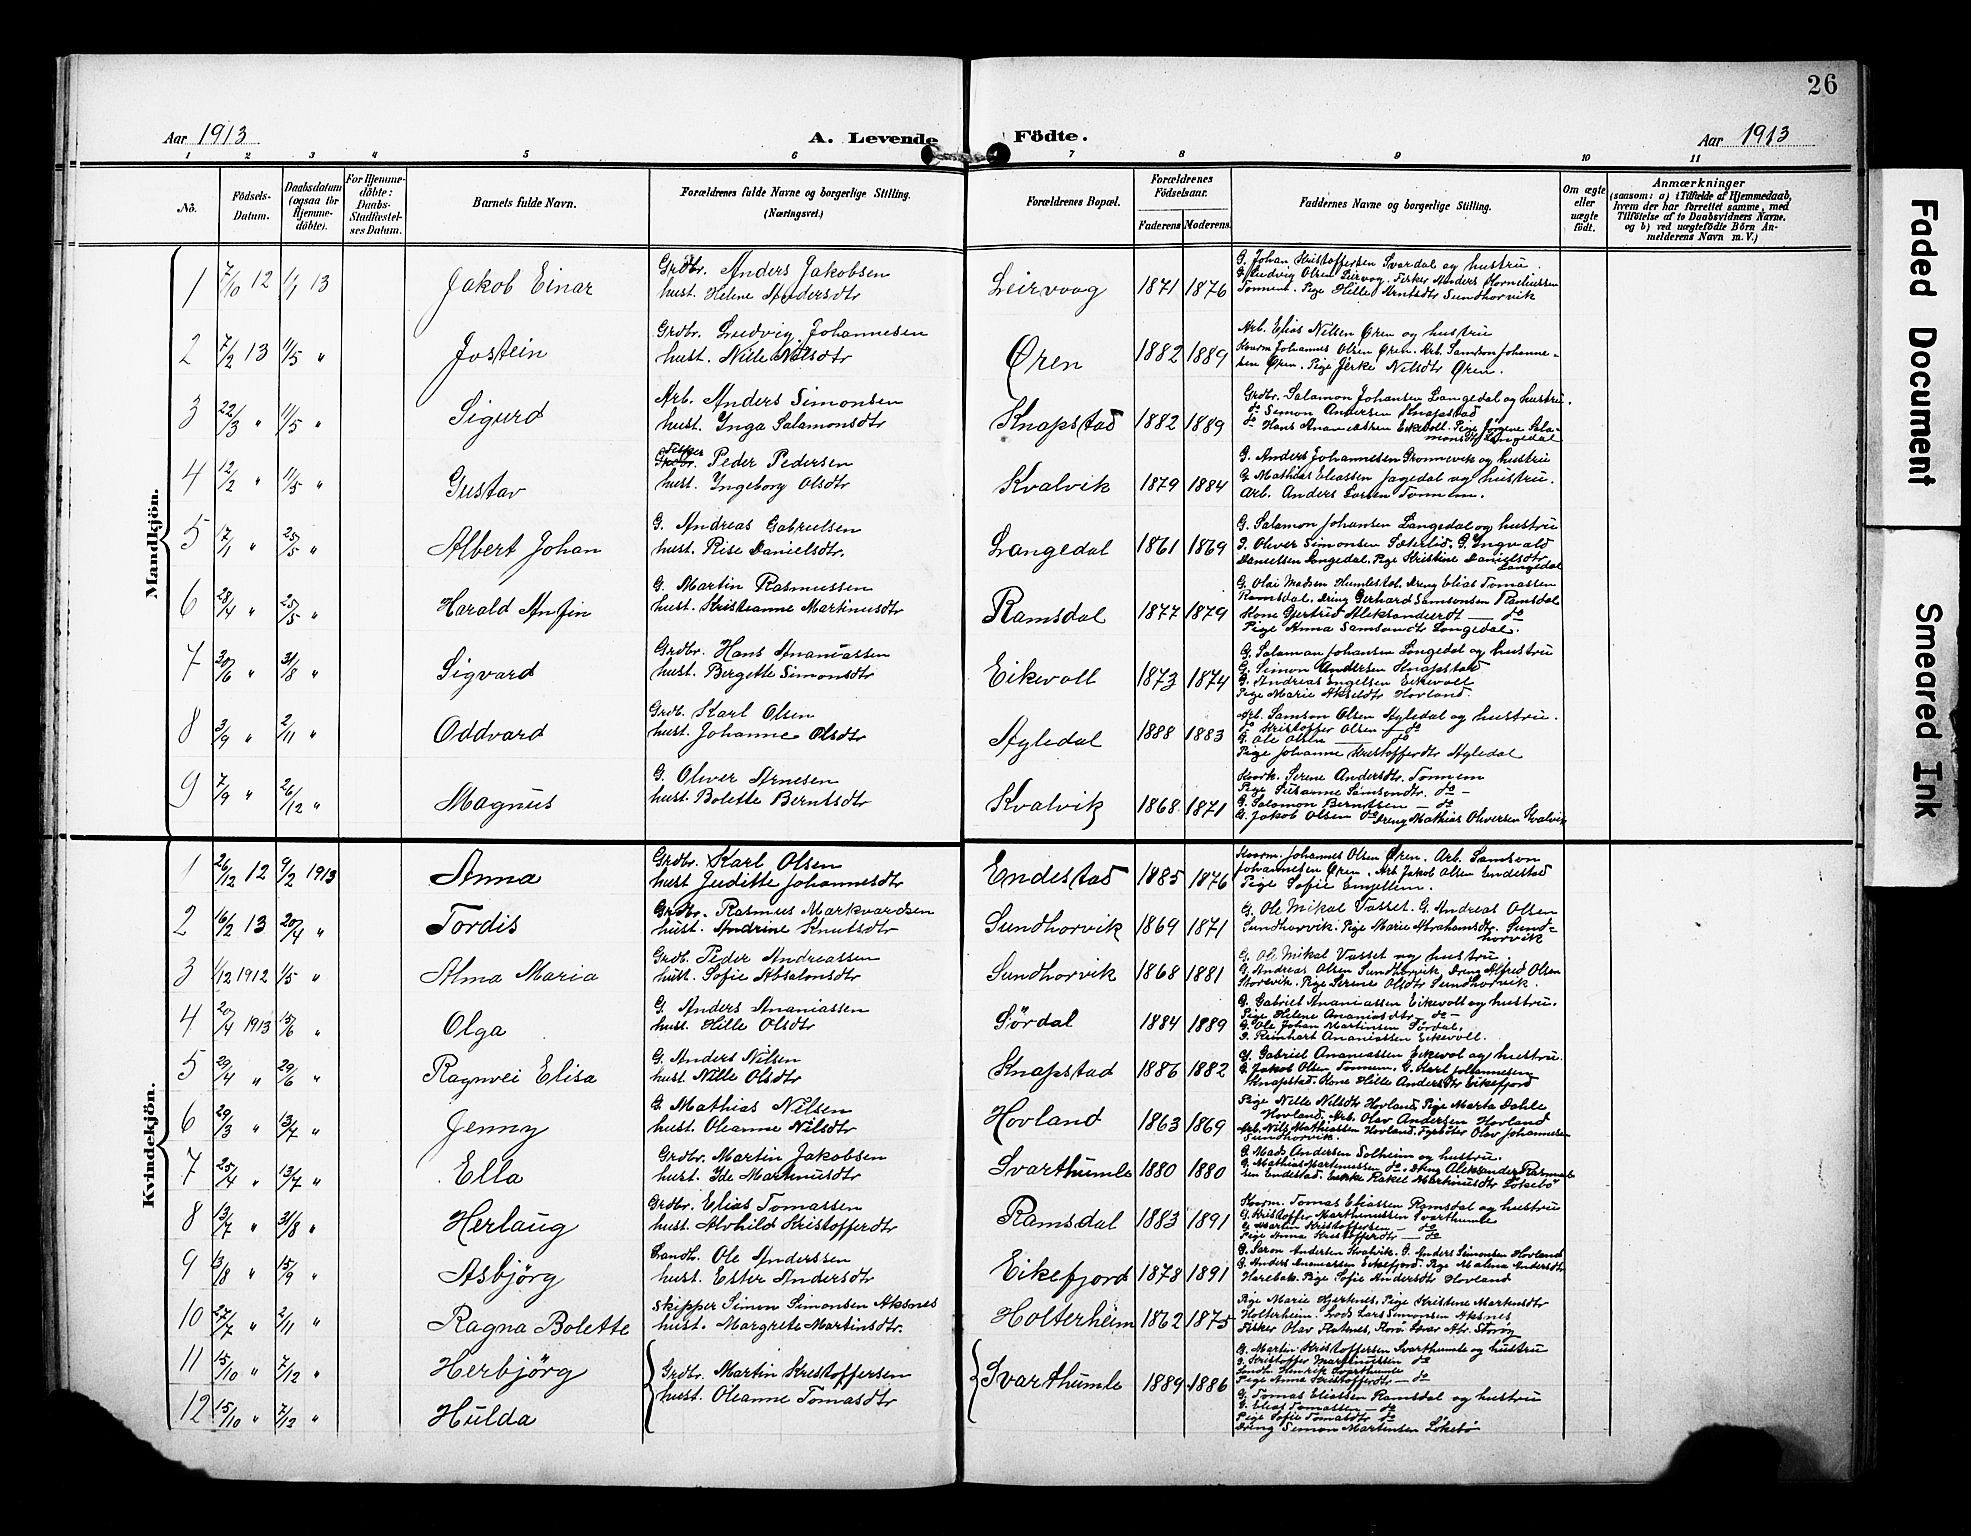 26
Aar 1913
A. Levende Födte.
Aar 1913
1 2 3 4 5 6 7 8 9 10 11
No.
Födsels-Datum.
Daabsdatum (ogsaa for Hjemme-döbte).
For Hjemme-döbte: Daabs-Stadfæstel-ses Datum.
Barnets fulde Navn.
Forældrenes fulde Navne og borgerlige Stilling. (Næringsvei.)
Forældrenes Bopæl.
Forældrenes Födselsaar.
Faderens Moderens
Faddernes Navne og borgerlige Stilling.
Om ægte eller uægte födt.
Anmærkninger
(saasom: a) i Tilfælde af Hjemmedaab, hvem der har forrettet samme, med Tilföielse af to Daabsvidners Navne. og b) ved uægtefödte Börn Anmelderens Navn m. V.)
Mandkjön.
1 7/10 12 1/1 13 Jakob Einar
Grdbr. Anders Jakobsen
hust. Helene Andersdtr
Leirvaag 1871 1876
G. Johan Kristoffersen Svardal og hustru.
G. Ludvig Olsen Leirvag. Fisker Anders Korneliussen
Tonnem. Pige Hille Arntsdtr Sundhorvik
2 7/2 13 11/5 " Jostein
Grdbr. Ludvig Johannesen
hust. Nille Nilsdtr
Øren 1882 1889
Arb. Elias Nilsen Øren og hustru
Kaarm. Johannes Olsen Øren. Arb. Samson Johanne-
sen Øren. Pige Jerke Nilsdtr Øren.
3 22/3 " 11/5 " Sigurd
Arb. Anders Simonsen
hust. Inga Salamonsdtr
Knapstad 1882 1889
Grdbr. Salamon Johansen Langedal og hustru.
do Simon Andersen Knapstad
do Hans Ananiassen Eikevoll. Pige Jörgene Sala-
monsdtr Langedal
4 12/2 " 11/5 " Gustav
Grdbr. Peder Pedersen
hust. Ingeborg Olsdtr
Kvalvik 1879 1884
G. Anders Johannesen Grønnevik og hustru
G. Mathias Eliassen Jagedal og hustru.
Arb. Anders Larsen Tonnem.
5 17/1 " 25/5 " Albert Johan
G. Andreas Gabrielsen
hust. Rise Danielsdtr.
Langedal 1861 1869
G. Salamon Johansen Langedal og hustru
G. Oliver Simonsen Sæterlid. G. Ingvald
Danielsen Langedal. Pige Kristine Danielsdtr
Langedal
6 28/4 " 25/5 " Harald Anfin
G. Martin Rasmussen
hust. Kristianne Martinusdtr
Ramsdal 1877 1879
G. Olai Madsen Humlestøl. Dreng Elias Tomassen
Ramsdal. Dreng Gerhard Samsonsen Ramsdal
Kone Gjertrud Aleksanderdt — do
Pige Anna Samsondtr Langedal.
7 20/6 " 31/8 " Sigvard
Grdbr. Hans Ananiassen
hust. Bergette Simonsdtr
Eikevoll 1873 1874
G. Salaman Johansen Langedal og hustru
G. Simon Andersen Knapstad
G. Andreas Engelsen Eikevoll
Pige Marie Akseldtr Hovland.
8 3/9 " 2/11 " Oddvard
Grdb. Karl Olsen
hust. Johanne Olsdtr
Ayledal 1888 1883
Arb. Samson Olsen Ayledal og hustru.
do Kristoffer Olsen — do
G. Ole Olsen — do
Pige Johanne Kristofferdtr Ayledal
9 7/9 " 26/12 " Magnus
G. Oliver Arnesen
hust. Bolette Berntsdtr
Kvalvik 1868 1871
Kaark. Serene Andersdtr. Tonnem
Pige Susanne Samsondtr. do -
G. Salomon Berntsen — do
G. Jakob Olsen do Dreng Mathias Oliversen Kvalvik
Kvindekjön.
1 26/12 12 9/2 1913 Anna
Grdbr. Karl Olsen
hust Juditte Johannesdtr
Endestad 1885 1876
Kaarm. Johannes Olsen Øren. Arb. Samson
Johannesen Øren. Arb Jakob Olsen Endestad
Pige Sofie Emjellem.
2 16/2 13 20/4 " Tordis
Grdbr. Rasmus Markvardsen
hust. Andrine Knutsdtr
Sundhorvik 1869 1871
G. Ole Mikal Vasset. G. Andreas Olsen
Sundhorvik. Pige Marie Abrahamsdtr. Sund-
horvik
3 1/12 1912 1/5 " Alma Maria
Grdb. Peder Andreassen
hust. Sofie Absalonsdtr
Sundhorvik 1868 1881
G. Ole Mikal Vasset og hustru
G. Andreas Olsen Sundhorvik, Dreng Alfred Olsen
Storevik. Pige Serene Olsdtr Sundhorvik.
4 20/4 1913 15/6 " Olga
G. Anders Ananiassen
hust. Hille Olsdtr
Sørdal 1884 1889
G. Gabriel Ananiassen Eikevoll og hustru.
Pige Helene Ananiasdtr — do —
G. Ole Johan Martinsen Sørdal.
G. Reinhart Ananiassen Eikevoll.
5 29/4 " 29/6 " Ragnvei Elisa
G. Anders Nilsen
hust. Nille Olsdtr
Knapstad 1886 1882
G. Gabriel Ananiassen Eikevol og hustru.
G. Jakob Olsen Tonnem. G. Karl Johannesen
Knapstad. Kone Hille Andersdtr Eikefjord
6 29/3 " 13/7 " Jenny
G. Mathias Nilsen
hust. Oleanne Nilsdtr
Hovland 1863 1869
Pige Nille Nilsdtr Hovland, Pige Marta Dahle
Hovland. Arb. Olav Andersen Hovland
Arb. Nils Mathiassen Hovland. Fyrbøter Olav Johannesen
Sundhorvik.
7 25/4 " 13/7 " Ella
Grdbr. Martin Jakobsen
hust. Ide Martinusdtr
Svarthumle 1880 1880
G. Mads Andersen Solheim og hustru.
G. Mathias Martinussen do. Dreng Aleksander Rasmus-
sen Endestad. Enke Rakel Martinusdtr Løkebø
8 13/7 " 31/8 " Herlaug
Grdbr. Elias Tomassen
hust. Alvhild Kristofferdtr
Ramsdal 1883 1891
Kaarm. Tomas Eliassen Ramsdal og hustru
G. Kristoffer Marthinussen Svarthumle
G. Martin Kristoffersen — do
Pige Anna Kristofferdtr — do
9 13/8 " 15/9 " Asbjörg
Landh. Ole Anderssen
hust. Ester Andersdtr
Eikefjord 1878 1891
G. Saron Andersen Kvalvik. G. Anders Simonsen Hovland
G. Anders Ananiassen Eikefjord. Pige Malina Andersdtr
Harebak. Pige Sofie Andersdtr Hovland
10 27/7 " 2/11 " Ragna Bolette
Skipper Simon Simonsen Aksnes
hust. Margrete Martinsdtr.
Holterheim 1862 1875
Pige Marie Hjertenes, Pige Kristine Martensdtr
Holterheim. Lods Lars Simonsen Aksnes
11 15/10 " 7/12 " Herbjörg
12 15/10 " 7/12 " Hulda
Grdbr. Martin Kristoffersen
hust. Oleanne Tomasdtr
Svarthumle 1889 1886
G. Martin Kristoffersen Svarthumle og hustru
G. Kristoffer Marthinussen do
Landh. Henrik Svarthumle
Pige Anna Kristofferdtr — do
G. Tomas Eliassen Ramsdal og hustru
G. Elias Tomassen — do
Pige Sofie Tomasdtr do
Dreng Simon Martensen Løkebø
Faded Document
Smeared Ink